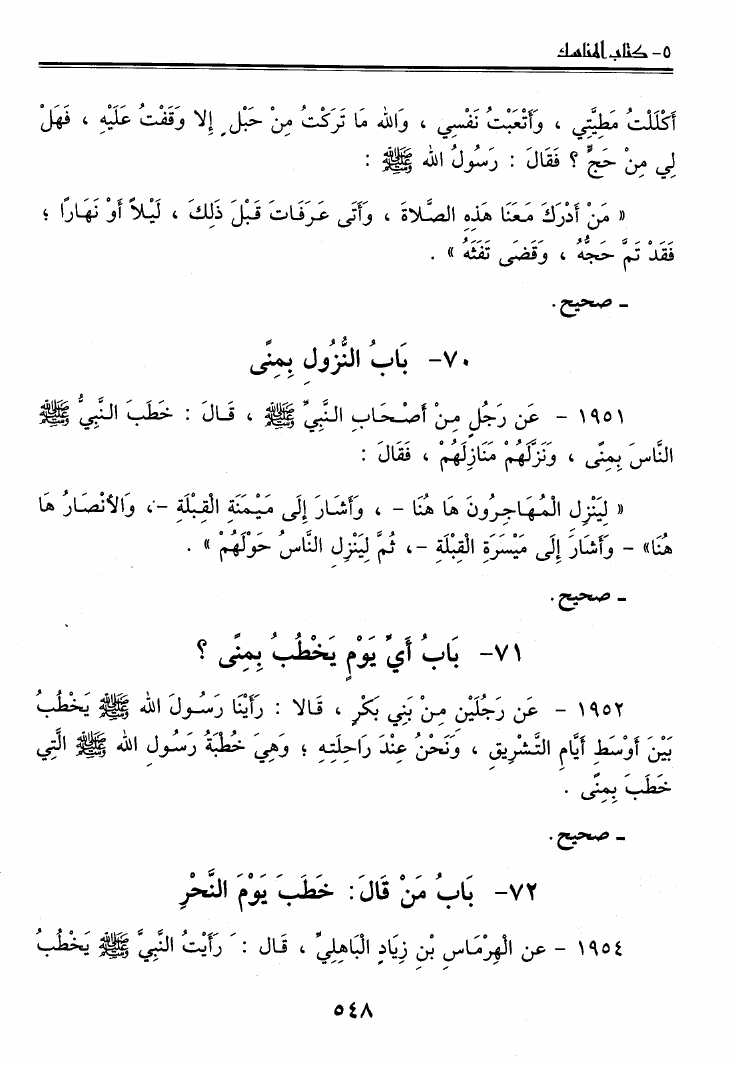 ٥- كتاب المناسك
أَكْلَلْتُ مَطِيَّتِي ، وَأَتْعَبْتُ نَفْسِي ، وَالله مَا تَرَكْتُ مِنْ حَبْلٍ إِلا وَقَفْتُ عَلَيْهِ ، فَهَلْ
لِي مِنْ حَجٍّ ؟ فَقَالَ : رَسُولُ الله ﷺ :
« مَنْ أَدْرَكَ مَعَنَا هَذِهِ الصَّلاةَ ، وَأَتَى عَرَفَاتَ قَبْلَ ذَلِكَ ، لَيْلاً أَوْ نَهَارًا ؛
فَقَدْ تَمَّ حَجُّهُ ، وَقَضَى تَفَثَهُ » .
ـ صحيح.
٧٠- بَابُ النُّزُولِ بِمِنًى
١٩٥١ - عَن رَجُلٍ مِنْ أَصْحَابِ النَّبِيِّ ﷺ ، قَالَ : خَطَبَ النَّبِيُّ ﷺ
النَّاسَ بِمِنًى ، وَنَزَّلَهُمْ مَنَازِلَهُمْ ، فَقَالَ :
« لِيَنْزِلِ الْمُهَاجِرُونَ هَا هُنَا - ، وَأَشَارَ إِلَى مَيْمَنَةِ الْقِبْلَةِ -، وَالأَنْصَارُ هَا
هُنَا» - وَأَشَارَ إِلَى مَيْسَرَةِ الْقِبْلَةِ -، ثُمَّ لِيَنْزِلِ النَّاسُ حَوْلَهُمْ » .
ـ صحيح.
٧١- بَابُ أَيِّ يَوْمٍ يَخْطُبُ بِمِنًى ؟
١٩٥٢ - عَن رَجُلَيْنِ مِنْ بَنِي بَكْرٍ ، قَالا : رَأَيْنَا رَسُولَ الله ﷺ يَخْطُبُ
بَيْنَ أَوْسَطِ أَيَّامِ التَّشْرِيقِ ، وَنَحْنُ عِنْدَ رَاحِلَتِهِ ؛ وَهِيَ خُطْبَةُ رَسُولِ الله ﷺ الَّتِي
خَطَبَ بِمِنًى .
ـ صحيح.
٧٢- بَابُ مَنْ قَالَ: خَطَبَ يَوْمَ النَّحْرِ
١٩٥٤ - عن الْهِرْمَاسِ بْنِ زِيَادٍ الْبَاهِلِيِّ ، قَال : رَأَيْتُ النَّبِيَّ ﷺ يَخْطُبُ
٥٤٨